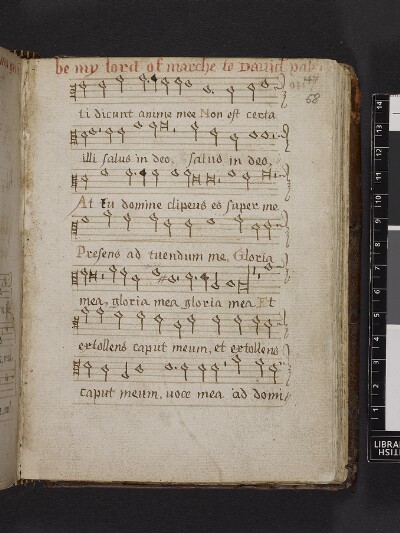 be my lord of marche to Dauid
147
68
ti dicunt anime mee Non est certa
illi salus in deo, salus in deo,
At tu domine clipeus es super me
Presens ad tuendum me, Gloria
mea, gloria mea gloria mea Et
extollens caput meum, et extollens
caput meum, uoce mea ad domi
1 2 3 4 5 6 7 8 9 10 11 12 13 14
LIBRAR